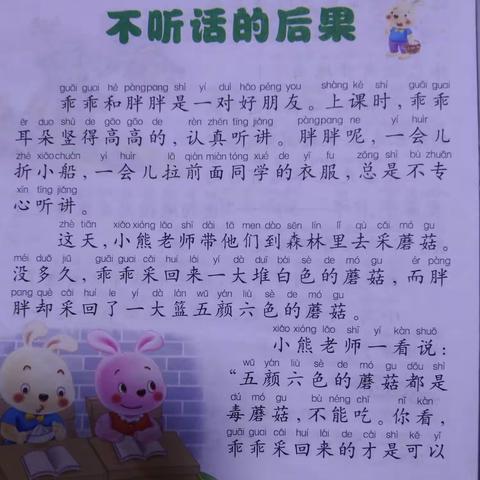 不听话的后果
guāi guai hé pàngpang shì yí duì hǎo péng you shàng kè shí guāi guai
乖乖和胖胖是一对好朋友。上课时，乖乖
ěr duo shù de gāo gāo de rèn zhēn tīng jiǎng pàngpang ne yí huìr
耳朵竖得高高的，认真听讲。胖胖呢，一会儿
zhé xiǎochuán yí huìr lā qián miàn tóng xué de yī fu zǒng shì bù zhuān
折小船，一会儿拉前面同学的衣服，总是不专
xīn tīng jiǎng
心听讲。
zhè tiān xiǎo xióng lǎo shī dài tā men dào sēn lín lǐ qù cǎi mó gu
这天，小熊老师带他们到森林里去采蘑菇。
méi duō jiǔ guāi guai cǎi huí lái yí dà duī bái sè de mó gu ér pàng
没多久，乖乖采回来一大堆白色的蘑菇，而胖
pang què cǎi huí le yí dà lán wǔ yán liù sè de mó gu
胖却采回了一大篮五颜六色的蘑菇。
xiǎo xióng lǎo shī yí kàn shuō
小熊老师一看说：
wǔ yán liù sè de mó gu dōu shì
“五颜六色的蘑菇都是
dú mó gu bù néng chī nǐ kàn
毒蘑菇，不能吃。你看，
guāi guai cǎi huí lái de cái shì kě yǐ
乖乖采回来的才是可以